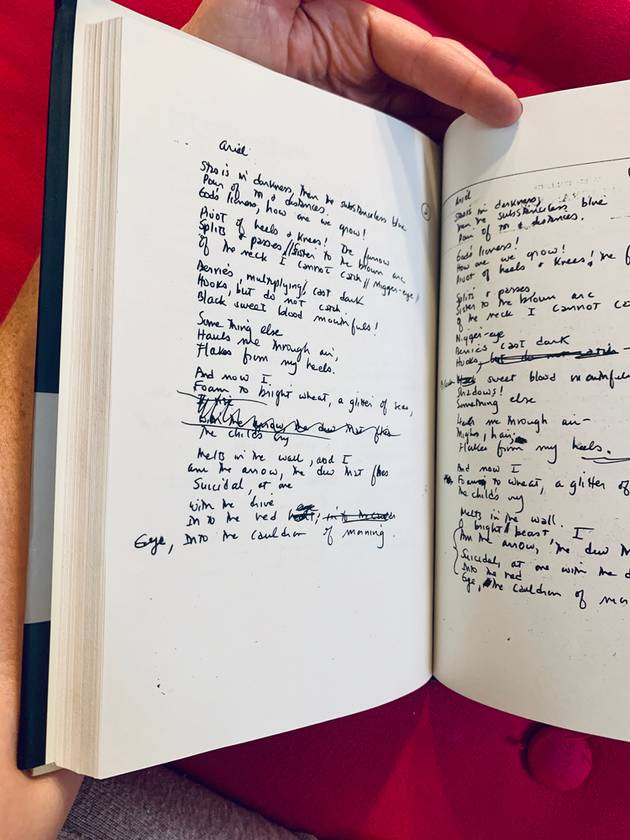 Ariel
Stasis in darkness, then the substanceless blue
Pour of tor & distances.
God's lioness, how are we grow!
Pivot of heels & knees! The furrow
Splits & passes // Sister to the brown arc
Of the neck I cannot catch // Nigger-eye //
Berries, multiplying, cast dark
Hooks, but do not catch.
Black sweet blood mouthfuls!
Something else
Hauls me through air,
Flakes from my heels.
And now I
Foam to bright wheat, a glitter of seas,
The child's cry
Melts in the wall, and I
am the arrow, the dew that flies
Suicidal, at one
with the drive
Into the red
Eye, Into the cauldron of morning.
2
Ariel
Stasis in darkness,
Then the substanceless blue
Pour of tor & distances.
God's lioness!
How are we grow!
Pivot of heels & knees! The f
Splits & passes
Sister to the brown arc
of the neck I cannot ca
Nigger-eye
Berries cast dark
Hooks,
sweet blood mouthfuls
Shadows!
Something else
Hauls me through air—
Thighs, hair,
Flakes from my heels.
And now I
Foam to wheat, a glitter of
The child's cry
Melts in the wall.
O bright beast, I
Am the arrow, the dew th
Suicidal, at one with the d
Into the red
Eye, the cauldron of mor